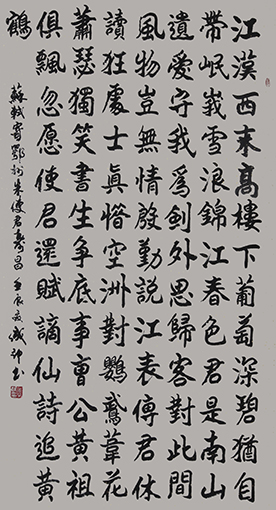 江漢西來高樓下葡萄深碧猶自
帶岷峩雪浪錦江春色君是南山
遺愛守我爲劍外思歸客對此間
風物豈無情殷勤說江表傳君休
讀狂處士眞惜空洲對鸚鵡葦花
蕭瑟獨笑書生爭底事曹公黃祖
俱飄忽愿使君還賦謫仙詩追黃
鶴
蘇軾寄鄂州朱使君壽昌壬辰夏